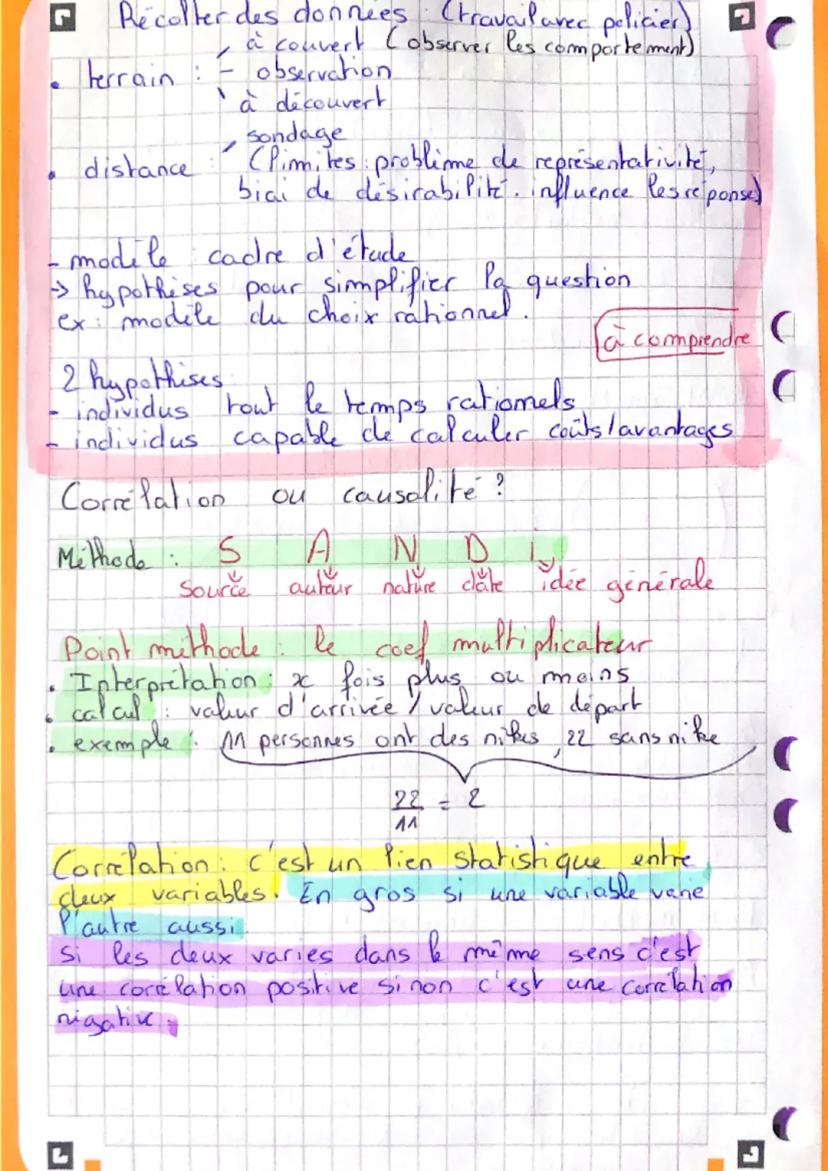 Récolter des données : (travail avec policier)
à couvert (observer les comportement)
• terrain : - observation
à découvert
sondage
• distance : (limites : problème de représentativité,
biai de désirabilité. influence les réponse)
- modèle : cadre d'étude
-> hypothèses pour simplifier la question
ex : modèle du choix rationnel.
à comprendre
2 hypothèses
- individus tout le temps rationnels
- individus capable de calculer coûts/avantages
Corrélation ou causalité ?
Méthode : S A N D i
source auteur nature date idée générale
Point méthode : le coef multiplicateur
• Interprétation : x fois plus ou moins
• calcul : valeur d'arrivée / valeur de départ
• exemple : 11 personnes ont des nikes, 22 sans nike
22/11 = 2
Corrélation : c'est un lien statistique entre
deux variables. En gros si une variable varie
l'autre aussi
si les deux varies dans le même sens c'est
une corrélation positive sinon c'est une corrélation
négative.